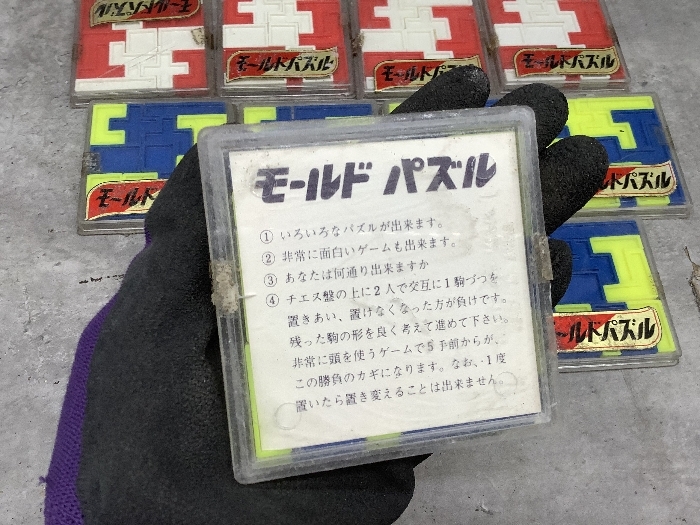 モールドパズル
モールドパズル
モールドパズル
モールドパズル
モールドパズル
モールドパズル
モールドパズル
モールド パズル
① いろいろなパズルが出来ます。
② 非常に面白いゲームも出来ます。
③ あなたは何通り出来ますか
④ チエス盤の上に2人で交互に1駒づつを
置きあい、置けなくなった方が負けです。
残った駒の形を良く考えて進めて下さい。
非常に頭を使うゲームで5手前からが、
この勝負のカギになります。なお、1度
置いたら置き変えることは出来ません。